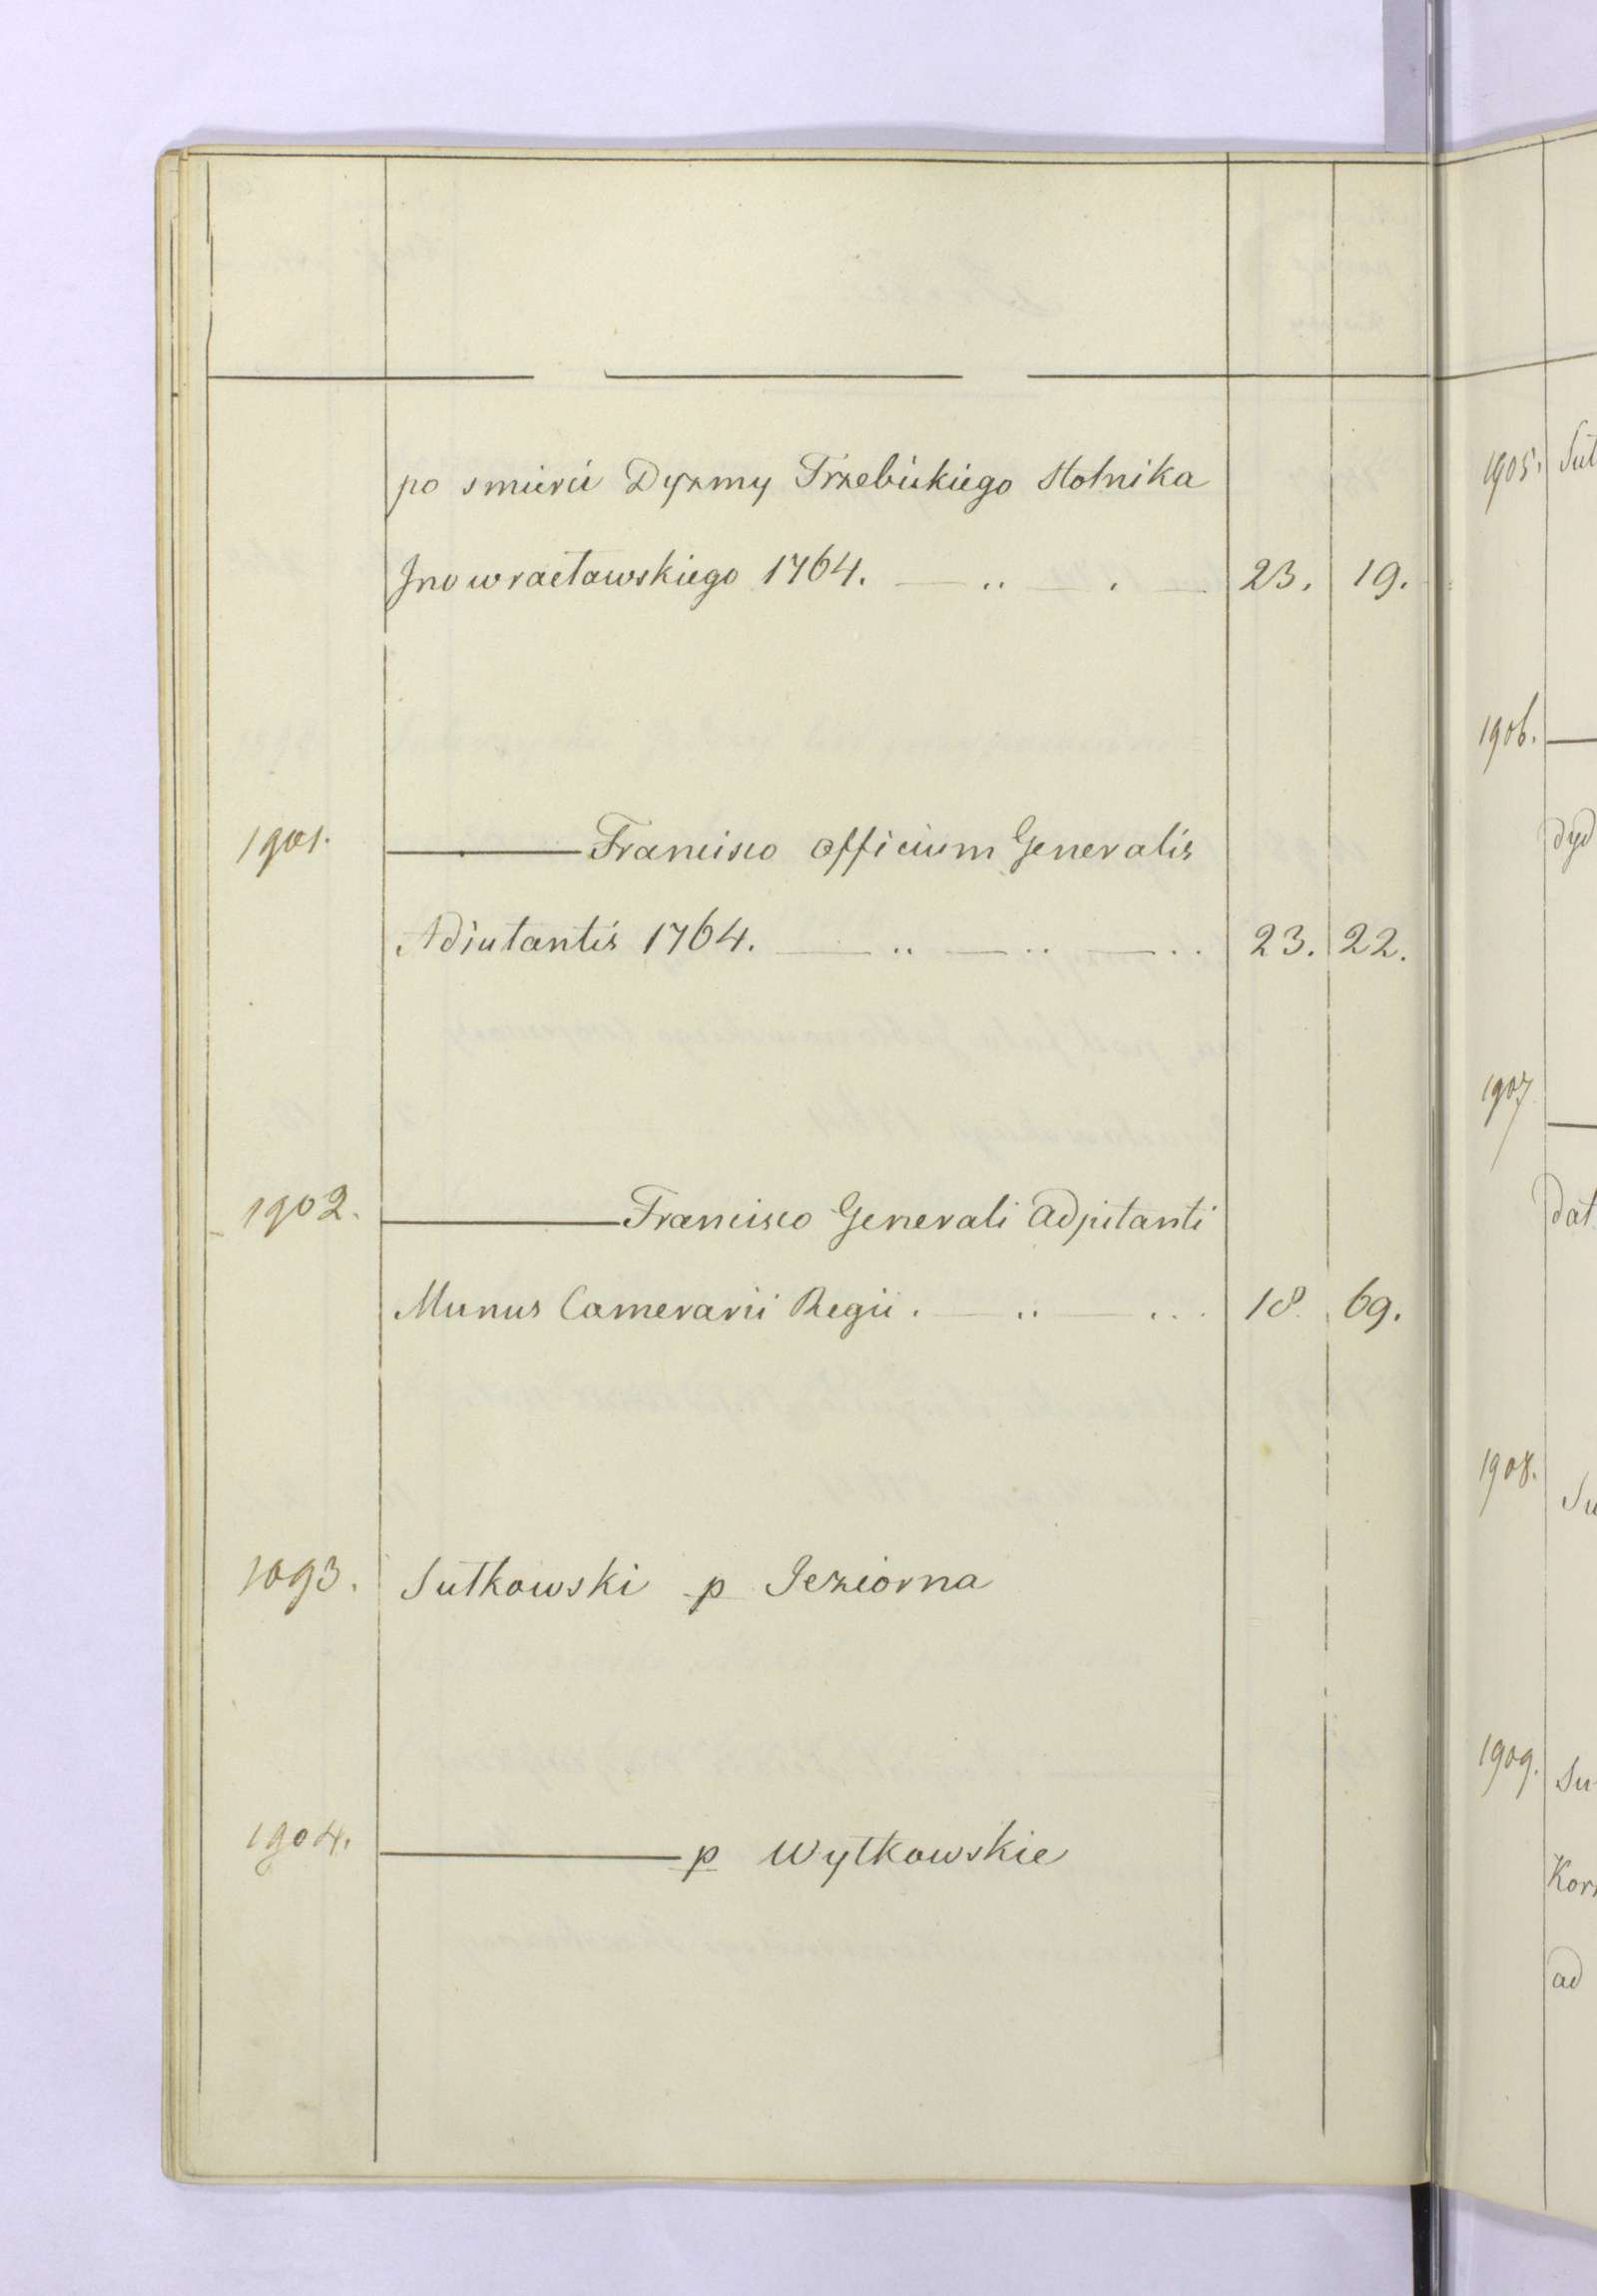 po smierci Dyzmy Trzebickiego Stolnika
Inowracławskiego 1764. 23. 19.
1901. Francisco Officium Generalis
Adiutantis 1764. 23. 22.
1902. Francisco Generali Adjutanti
Munus Camerarii Regii. 18. 69.
1093. Sułkowski p Jeziorna
1904. p Wytkowskie
1905. Suł
1906.
dyd
1907
dat
1908. Su
1909. Su
Kor
ad